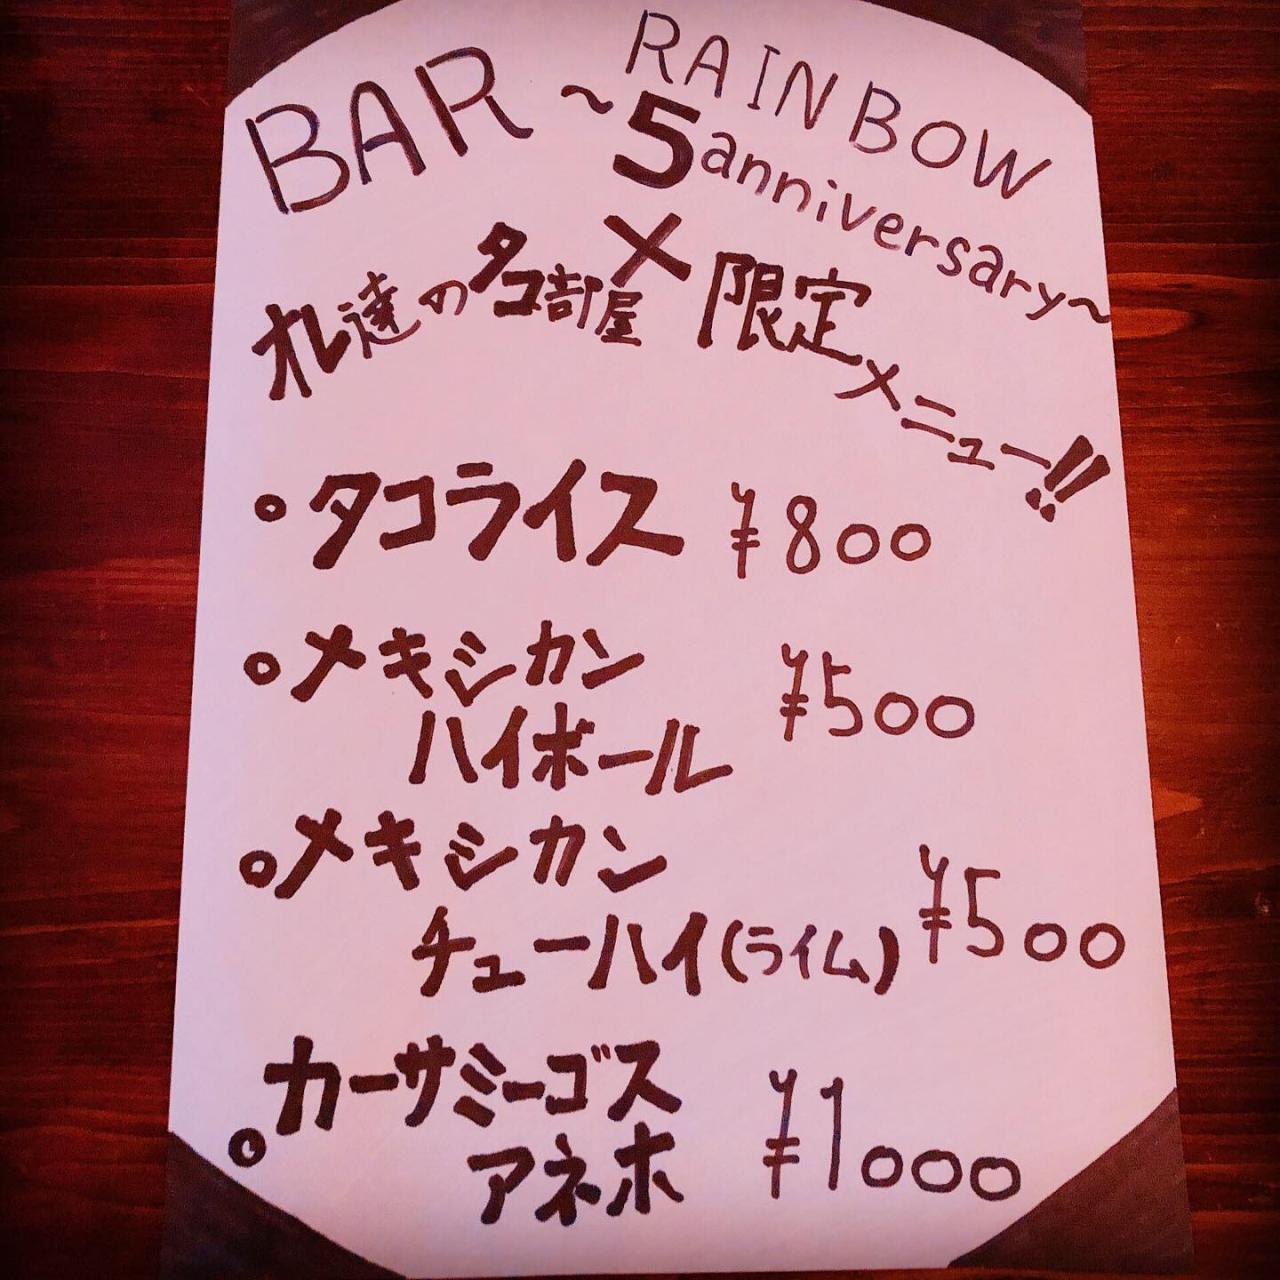 BAR RAINBOW
~5anniversary~
×
オレ達のタコ部屋 限定メニュー!!
。タコライス ¥800
。メキシカン
ハイボール ¥500
。メキシカン
チューハイ(ライム) ¥500
。カーサミーゴス
アネホ ¥1000